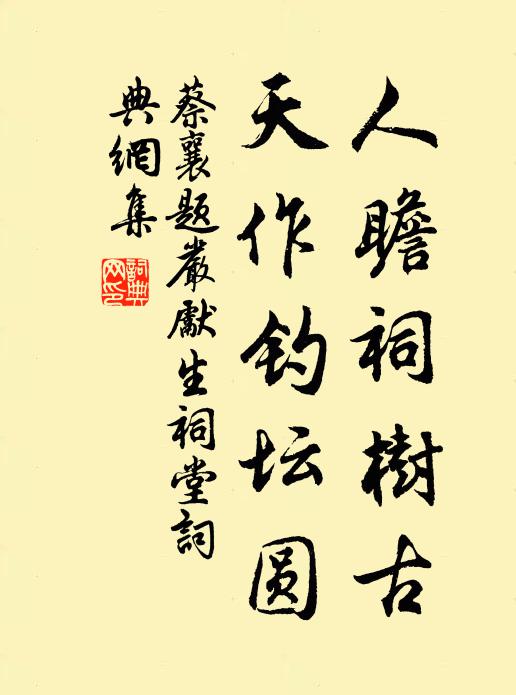 人瞻祠樹古
天作钓坛圆
蔡襄题嚴獻生祠堂詞
典網集
詞典
网印